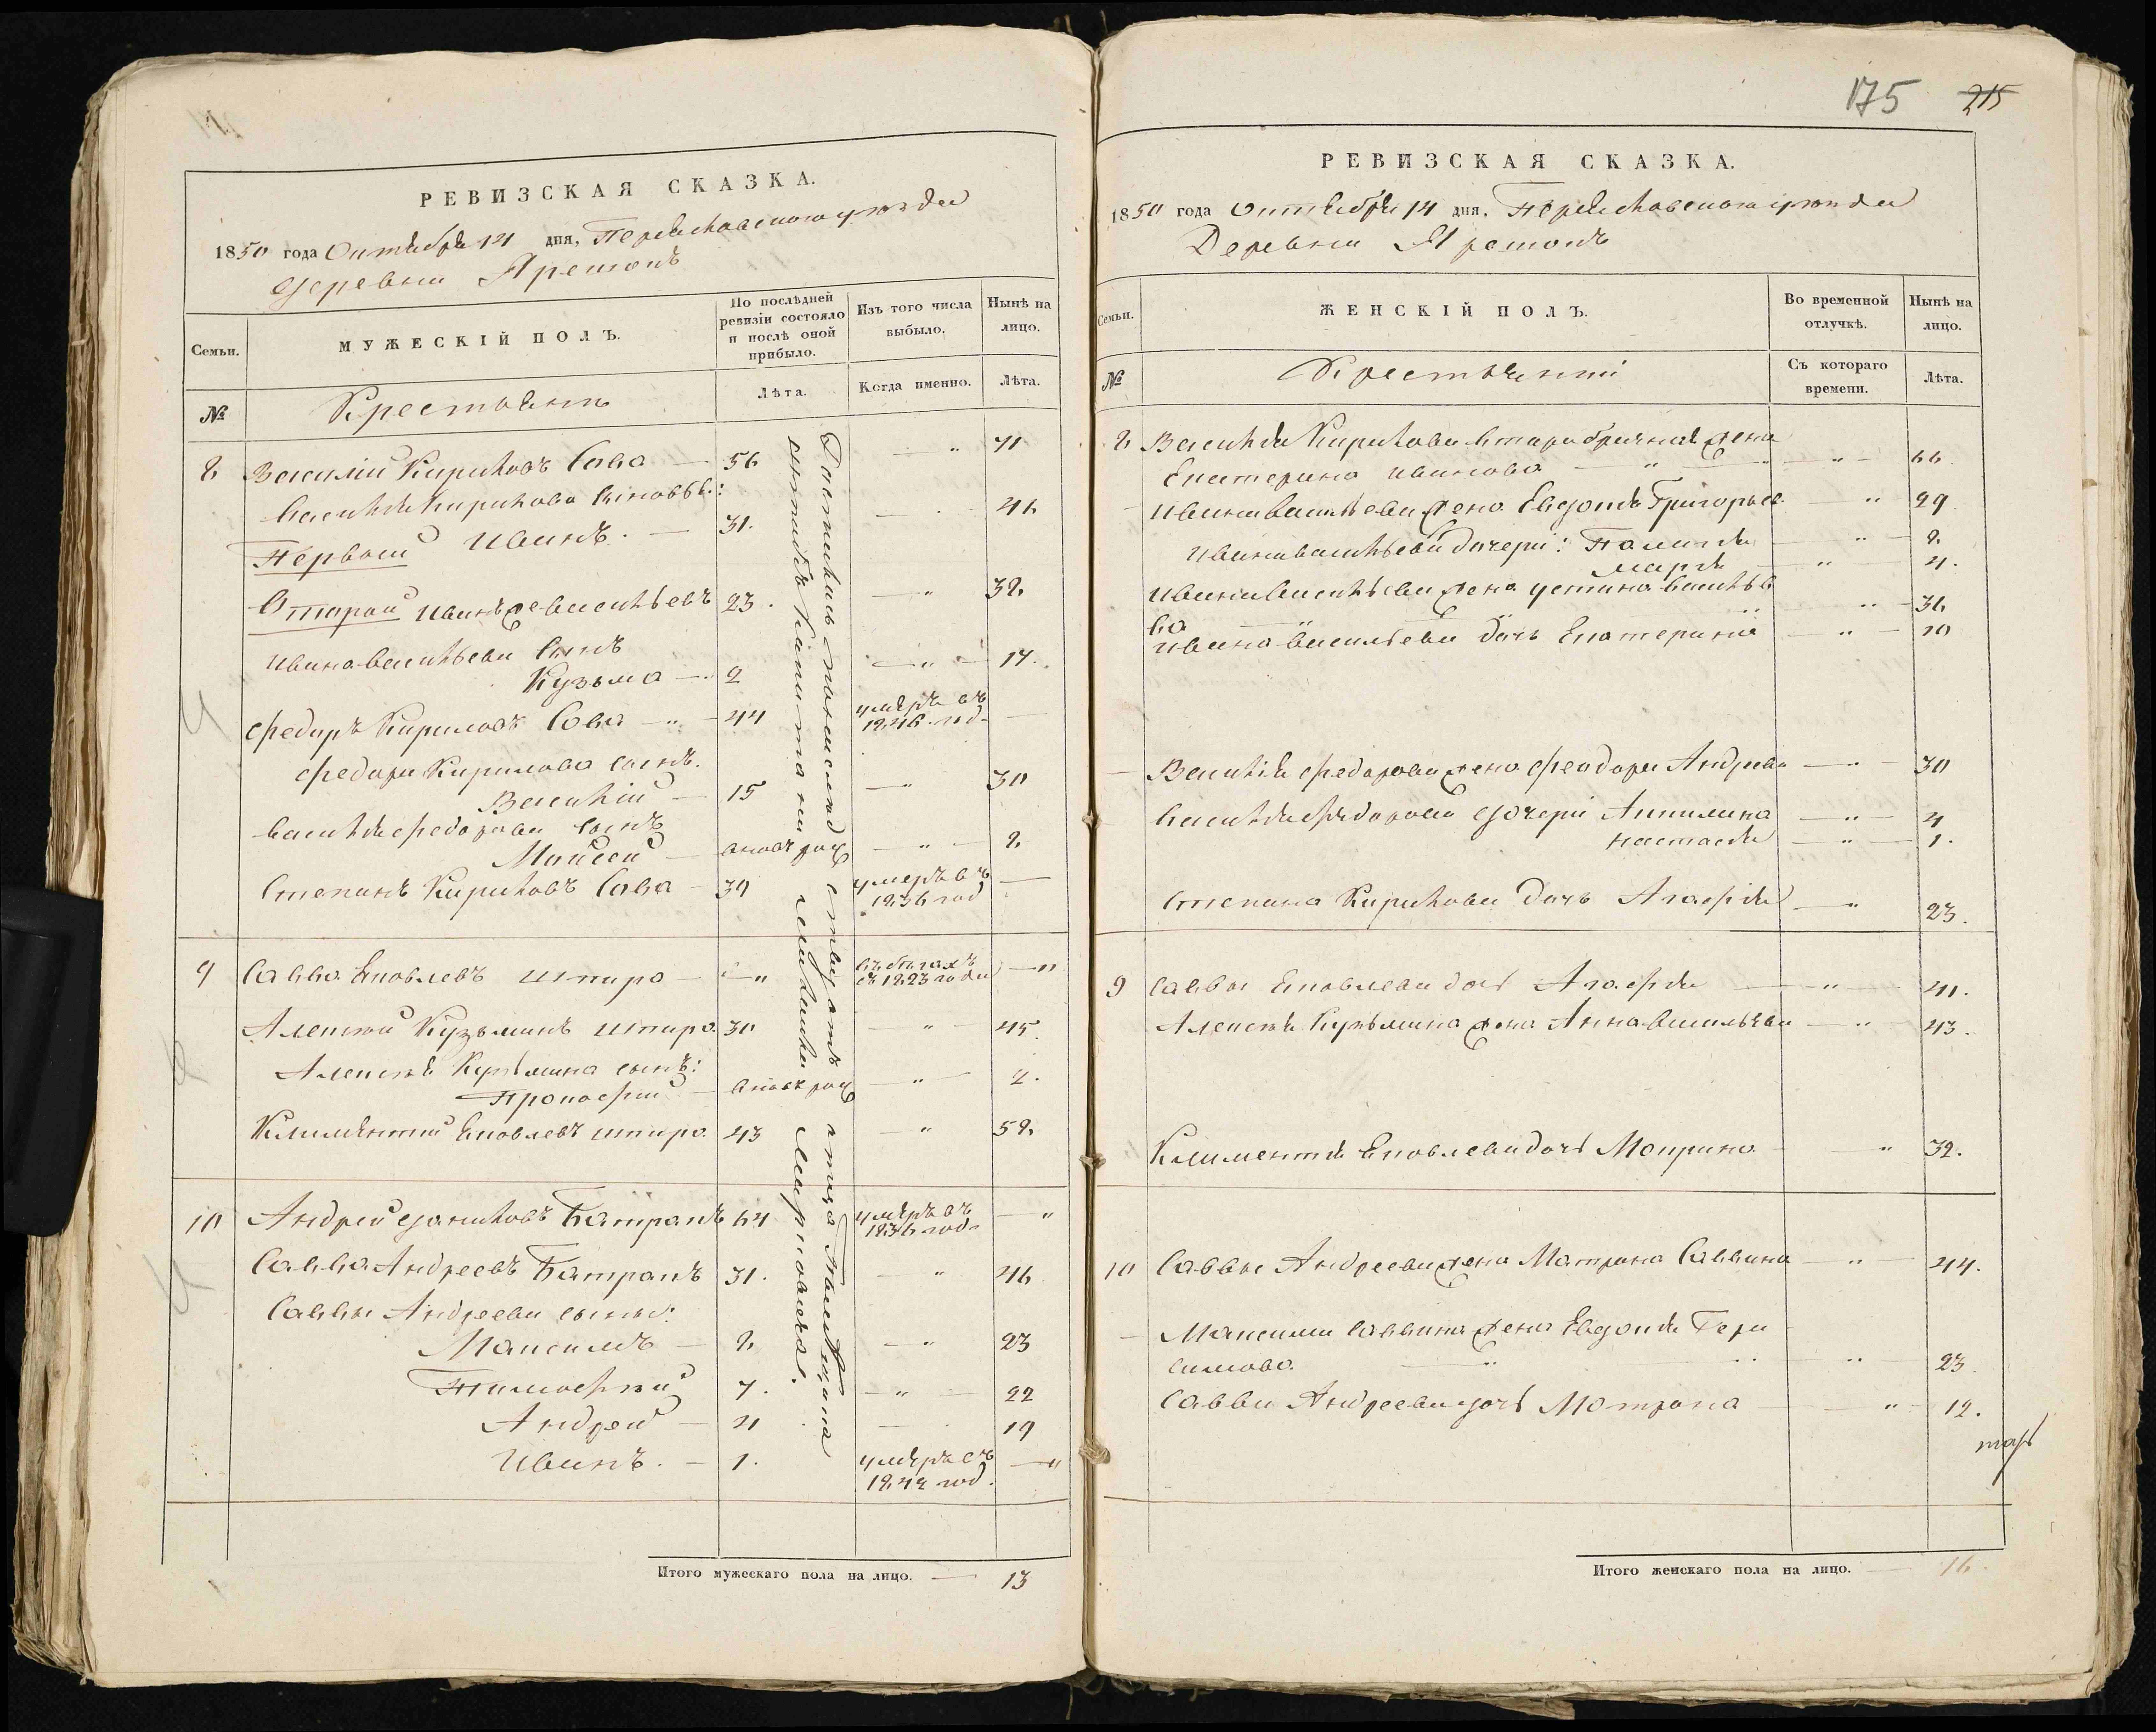 РЕВИЗСКАЯ СКАЗКА.
1850 года Октября 14 дня, Переяславского уезда
Деревни Ярешокъ
Семьи.
МУЖЕСКІЙ ПОЛЪ.
По послѣдней ревизіи состояло и послѣ оной прибыло.
Изъ того числа выбыло.
Нынѣ на лицо.
№
Крестьянъ
Лѣта.
Когда именно.
Лѣта.
8 Василий Кириловъ Сова — 56 — " 71
Василия Кирилова сыновья:
Первый Иванъ. — 31. — 46
Второй Иванъ же Васильевъ 23. — " 38
Ивана Васильева сынъ
Кузьма — 2 — " — 17.
Федоръ Кириловъ Сова — " — 44 умеръ въ 1846 год —
Федора Кирилова сынъ.
Василий — 15 — " 30
Василия Федорова сынъ
Мойсей — вновь рож — " — 8
Степанъ Кириловъ Сова — 39 умеръ въ 1836 год —
9 Савва Яковлевъ Шпира — — " въ бегахъ съ 1823 года — "
Алексей Кузьминъ Шпира 30 — " — 45.
Алексея Кузьмина сынъ:
Прокофий — вновь рож — " — 2.
Климентий Яковлевъ Шпира 43 — " 58
10 Андрей Даниловъ Батракъ 64 умеръ въ 1836 год — "
Савва Андреевъ Батракъ 31. — " 46
Саввы Андреева сыны:
Максимъ — 8 — " 23
Тимофей 7. — " — 22
Андрей — 4 — 19
Иванъ. — 1. умеръ въ 1842 год. — "
Досталась помещ отъ отца капитана
Итого мужескаго пола на лицо. — 13
175 215
РЕВИЗСКАЯ СКАЗКА.
1850 года Октября 14 дня, Переяславского уезда
Деревни Ярешокъ
Семьи.
ЖЕНСКІЙ ПОЛЪ.
Во временной отлучкѣ.
Нынѣ на лицо.
№
Крестьянки
Съ котораго времени.
Лѣта.
8 Василия Кирилова втораобрачная жена
Екатерина Иванова — " — " — 66.
Ивана Васильева жена Евдокия Григорьев. — " 29
Ивана Васильева дочери: Палажка — " — 8
Марья — " — 4.
Ивана Васильева жена Устина Василье
ва — " — " — 36
Ивана Васильева дочь Екатерина — " — 10
Василия Федорова жена Феодора Андреева — " — 30
Василия Федорова дочери Акилина — " — 4
Настасия — " — 1.
Степана Кирилова дочь Агафия — " 23.
9 Саввы Яковлева дочь Агафия — " — 41.
Алексея Кузьмина жена Анна Васильева — " — 43.
Климентия Яковлева дочь Мотрина — " 32.
10 Саввы Андреева жена Матрина Саввина — " — 44.
Максима Саввина жена Евдокия Гера
симова. — " — " 23.
Саввы Андреева дочь Мотрона — " — 12.
Итого женскаго пола на лицо. — 16.